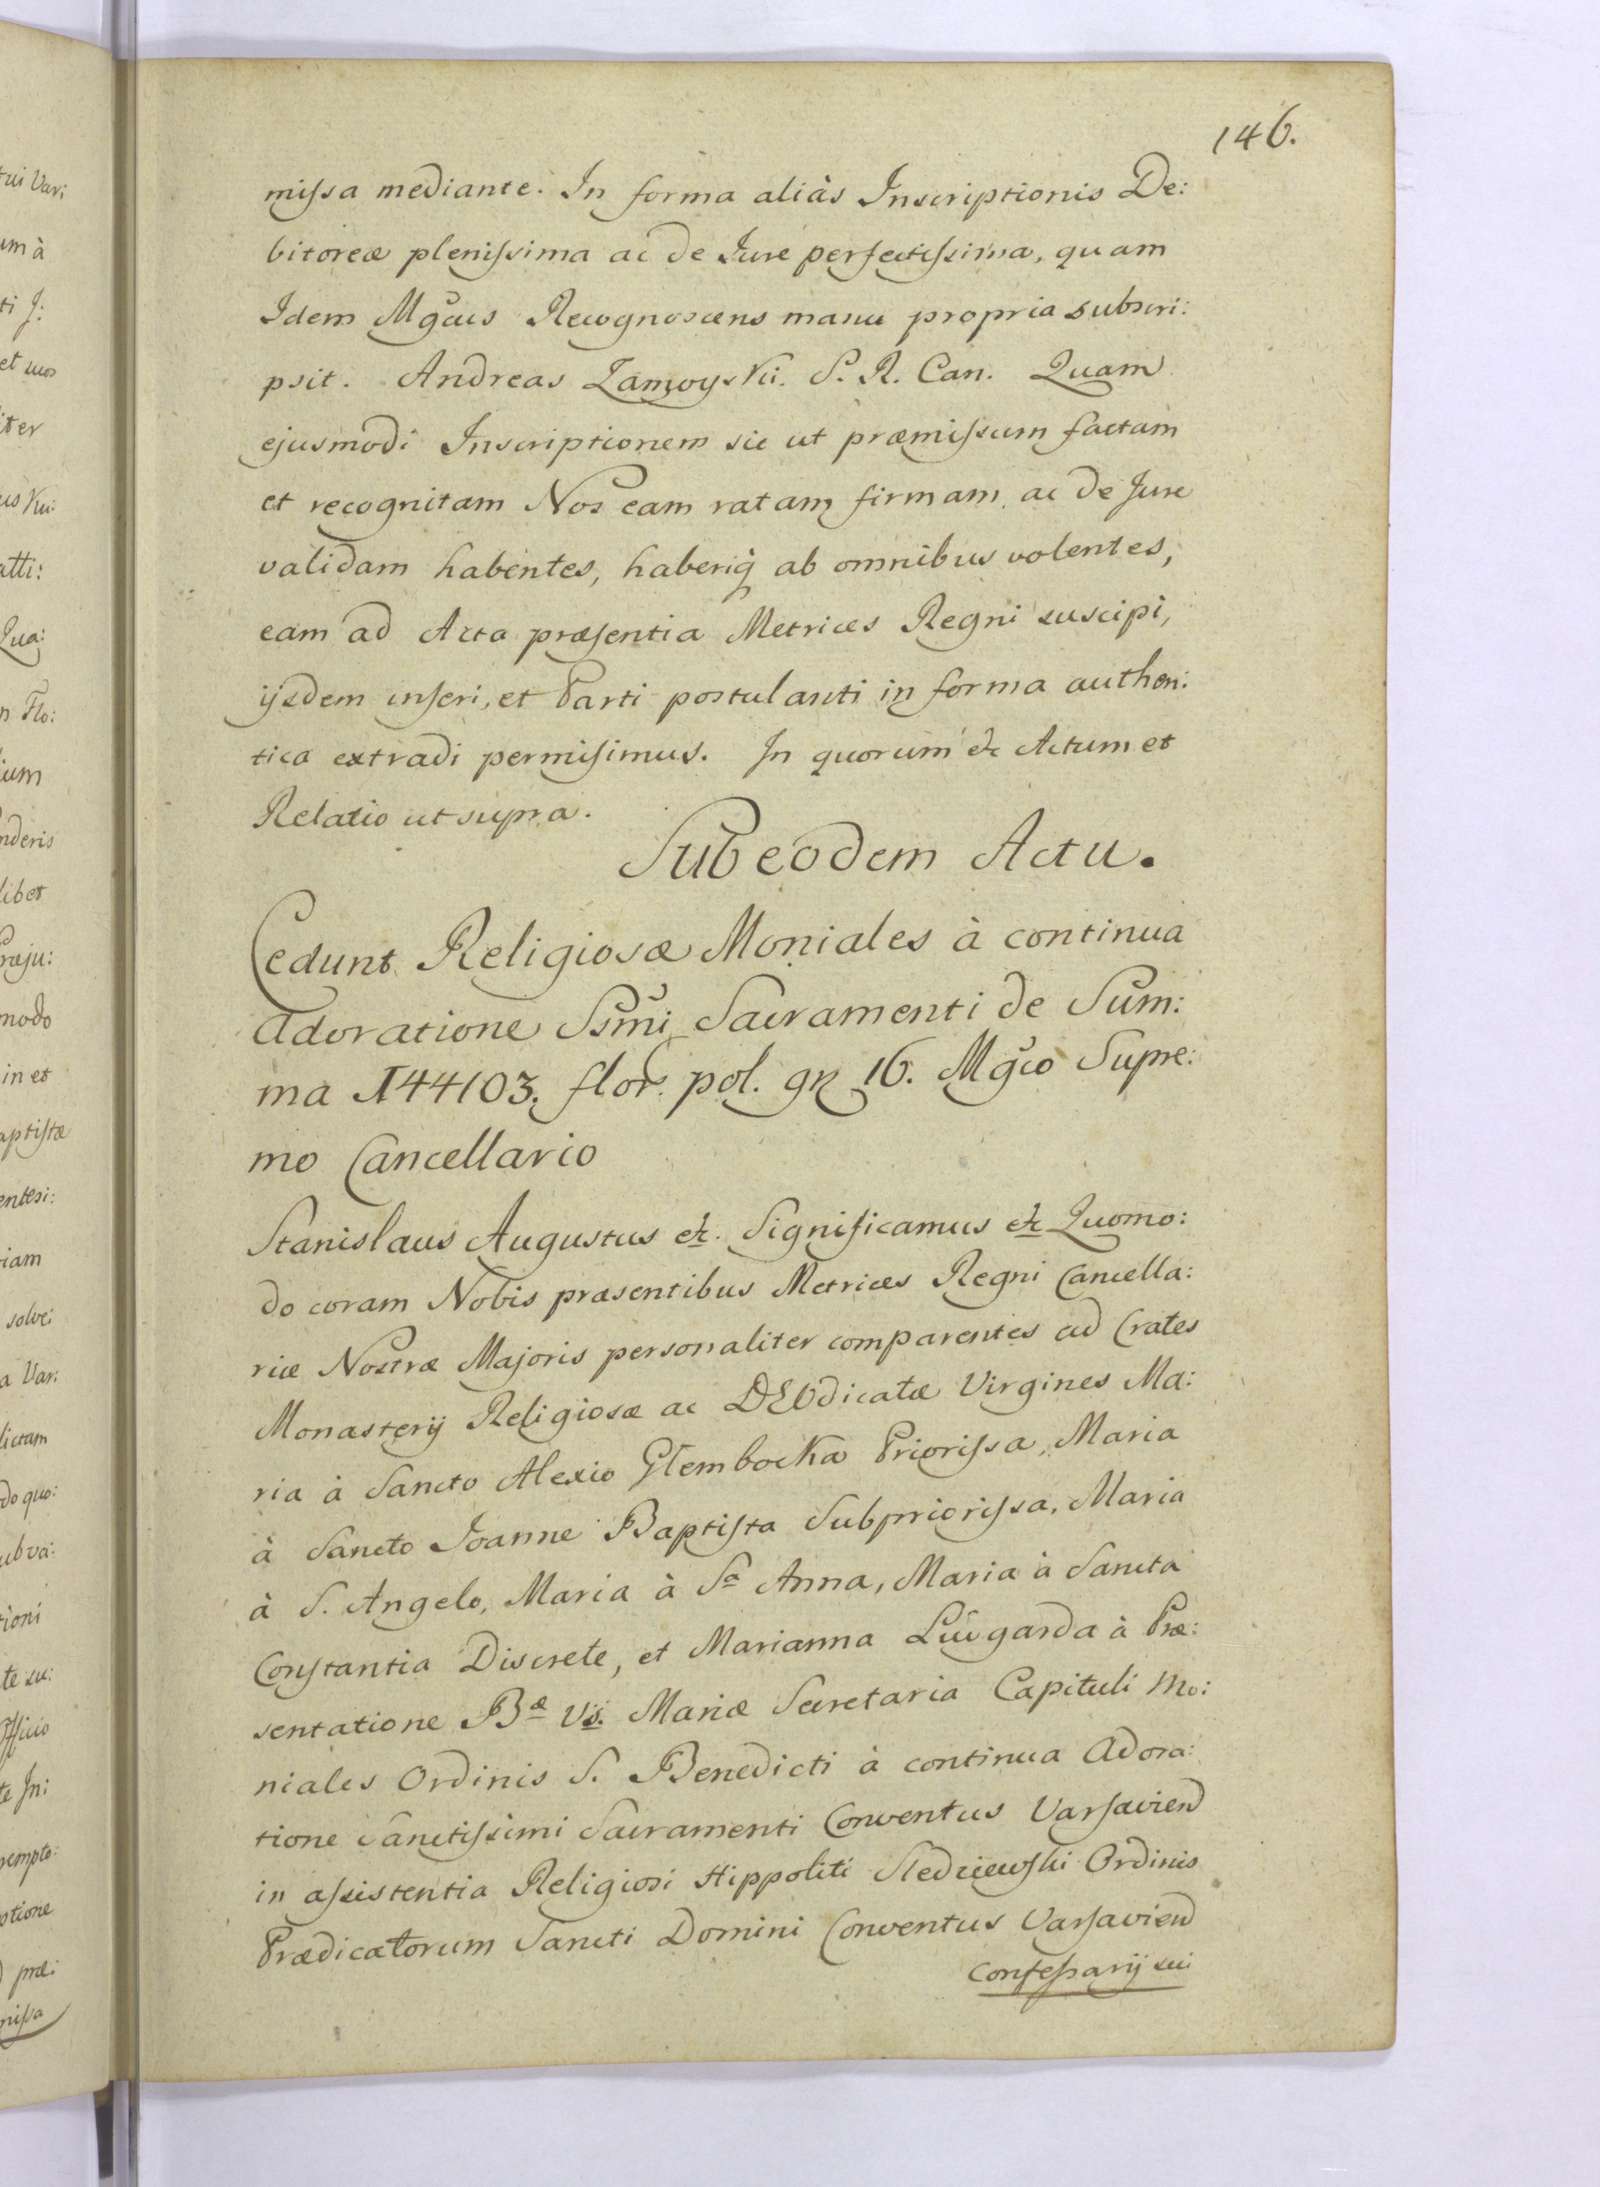 146.
missa mediante. In forma aliàs Inscriptionis De:
bitoreæ plenissima ac de Jure perfectissima, quam
Idem Mgcus Recognoscens manu propria subscri:
psit. Andreas Zamoyski. S. R. Can. Quam
ejusmodi Inscriptionem sic ut præmissum factam
et recognitam Nos eam ratam firmam ac de Jure
validam habentes, haberiq ab omnibus volentes,
eam ad Acta præsentia Metrices Regni suscipi,
ijsdem inseri, et Parti postulanti in forma authen:
tica extradi permisimus. In quorum etc Actum et
Relatio ut supra.
Sub eodem Actu.
Cedunt Religiosæ Moniales à continua
Adoratione Ssmi Sacramenti de Sum:
ma 144103. flor. pol. gr 16. Mgco Supre:
mo Cancellario
Stanislaus Augustus etc. Significamus etc Quomo:
do coram Nobis præsentibus Metrices Regni Cancella:
riæ Nostræ Majoris personaliter comparentes ad Crates
Monasterij Religiosæ ac DEOdicatæ Virgines Ma:
ria à Sancto Alexio Glembocka Priorissa, Maria
à Sancto Joanne Baptista Subpriorissa, Maria
à S. Angelo, Maria à Sa Anna, Maria à Sancta
Constantia Discrete, et Marianna Luitgarda à Præ:
sentatione Bæ Vs. Mariæ Secretaria Capituli Mo:
niales Ordinis S. Benedicti à continua Adora:
tione Sanctissimi Sacramenti Conventus Varsavien
in assistentia Religiosi Hippoliti Sledziewski Ordinis
Prædicatorum Sancti Domini Conventus Varsavien
Confessarij sui